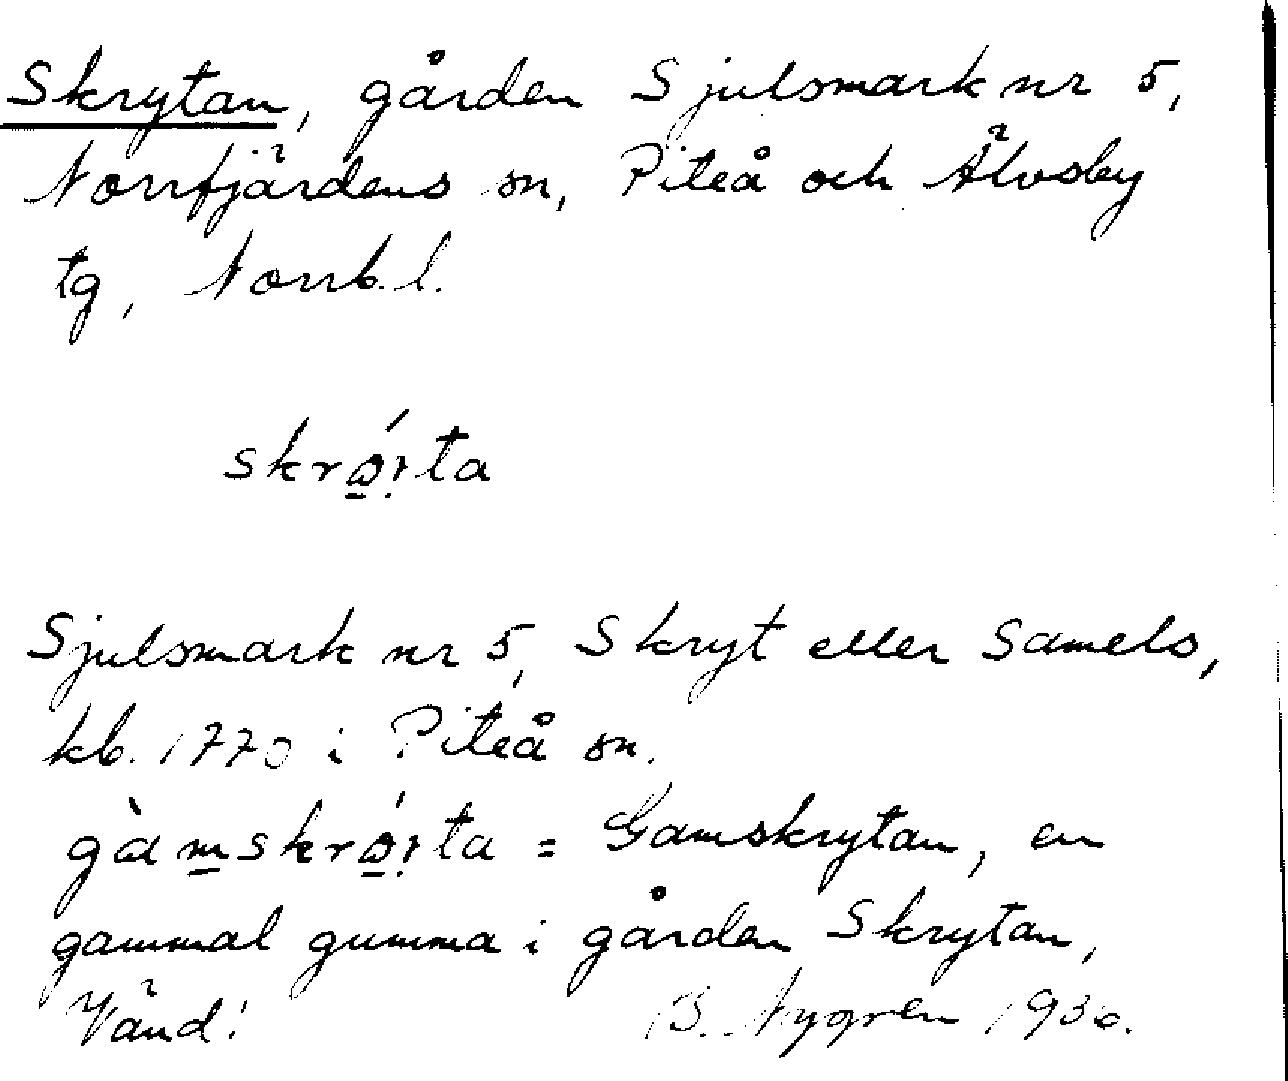 Skrytan, gården Sjulsmark nr 5,
Norrfjärdens sn, Piteå och Älvsby
tg, Norrb. l.
Sjulsmark nr 5, Skryt eller Samels,
kb. 1770 i Piteå sn.
= Gamskrytan, en
gammal gumma i gården Skrytan,
Vänd! B. Nygren 1936.